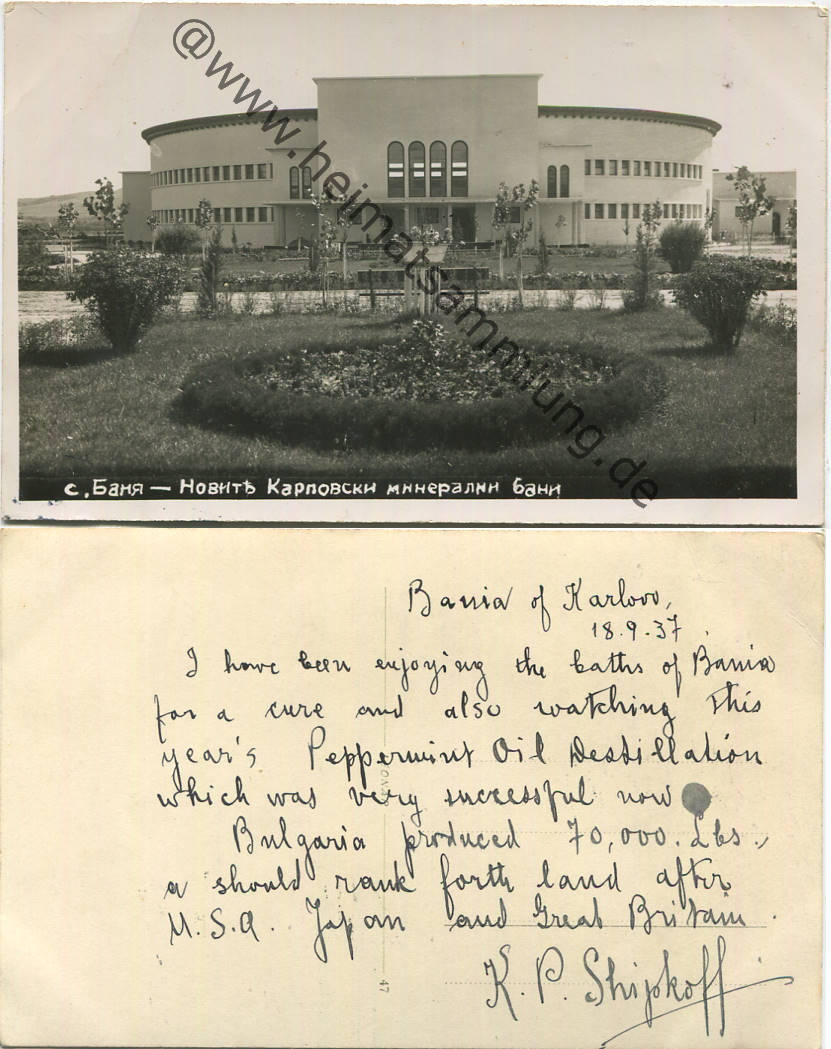 @www.heimatsammlung.de
с. Баня — Новитѣ Карловски минерални бани
Bania of Karlovo,
18.9.37
I have been enjoying the baths of Bania
for a cure and also watching this
year's Peppermint Oil Destillation
which was very successful now
Bulgaria produced 70,000. Lbs.,
a should rank forth land after
U.S.A. Japan and Great Britain.
K. P. Shipkoff
47